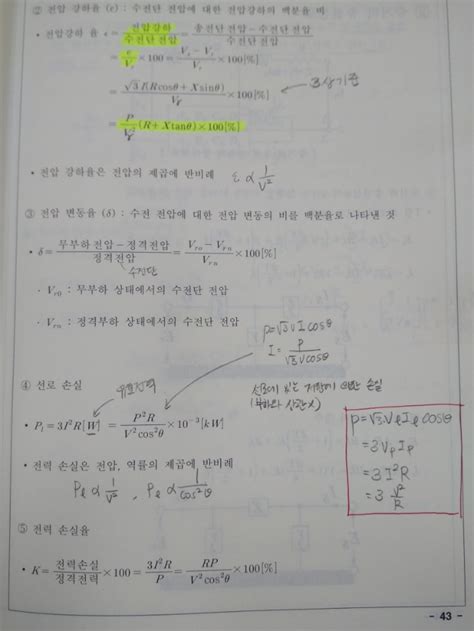 ② 전압 강하율 (ε) : 수전단 전압에 대한 전압강하의 백분율 비
• 전압강하 율 ε = 전압강하/수전단 전압 = 송전단 전압 - 수전단 전압/수전단 전압
= e/Vr × 100 = Vs - Vr/Vr × 100[%]
= √3 I(Rcosθ + Xsinθ)/Vr × 100[%] ← 3상기준
= P/Vr² (R + Xtanθ) × 100[%]
• 전압 강하율은 전압의 제곱에 반비례 ε ∝ 1/V²
③ 전압 변동율 (δ) : 수전 전압에 대한 전압 변동의 비를 백분율로 나타낸 것
• δ = 무부하 전압 - 정격전압/정격전압 = Vro - Vrn/Vrn × 100[%]
수전단
· Vro : 무부하 상태에서의 수전단 전압
· Vrn : 정격부하 상태에서의 수전단 전압
P=√3VIcosθ
I = P/√3Vcosθ
④ 선로 손실
유효전력
선로에 있는 저항에 의한 손실
(부하와 상관X)
• Pl = 3I²R[W] = P²R/V²cos²θ × 10⁻³[kW]
• 전력 손실은 전압, 역률의 제곱에 반비례
Pl ∝ 1/V² , Pl ∝ 1/cos²θ
P=√3VlIlcosθ
=3VpIp
=3I²R
=3 V²/R
⑤ 전력 손실율
• K = 전력손실/정격전력 × 100 = 3I²R/P = RP/V²cos²θ × 100[%]
- 43 -